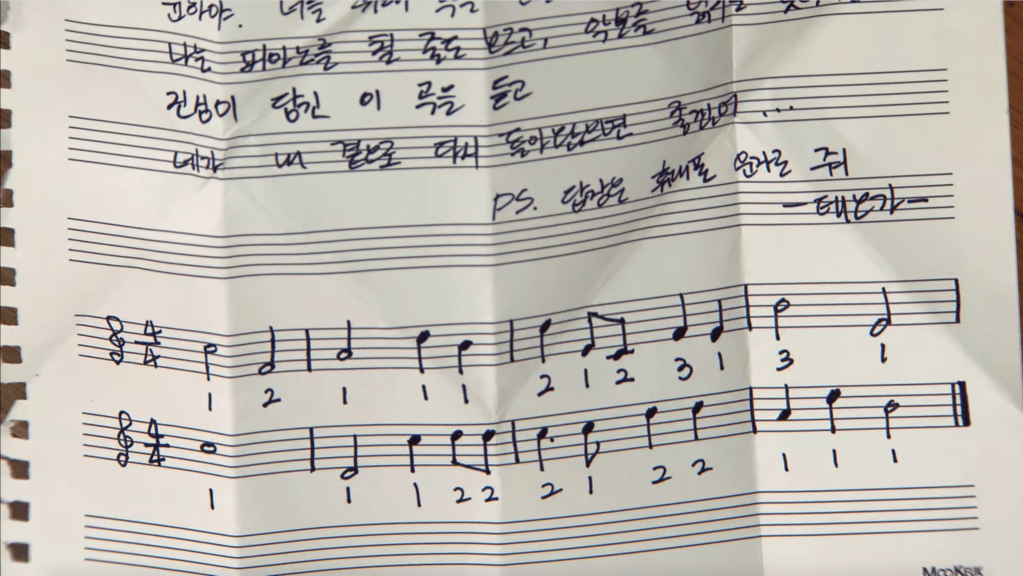 고하야. 너를
나는 피아노를 칠 줄도 모르고, 악보를
진심이 담긴 이 곡을 듣고
네가 내 곁으로 다시 돌아와준다면
PS. 답장은 휴대폰 문자로 줘
4 4
1 2 1 1 1 2 1 2 3 1 3 1
4 4
1 1 1 2 2 2 1 2 2 1 1 1